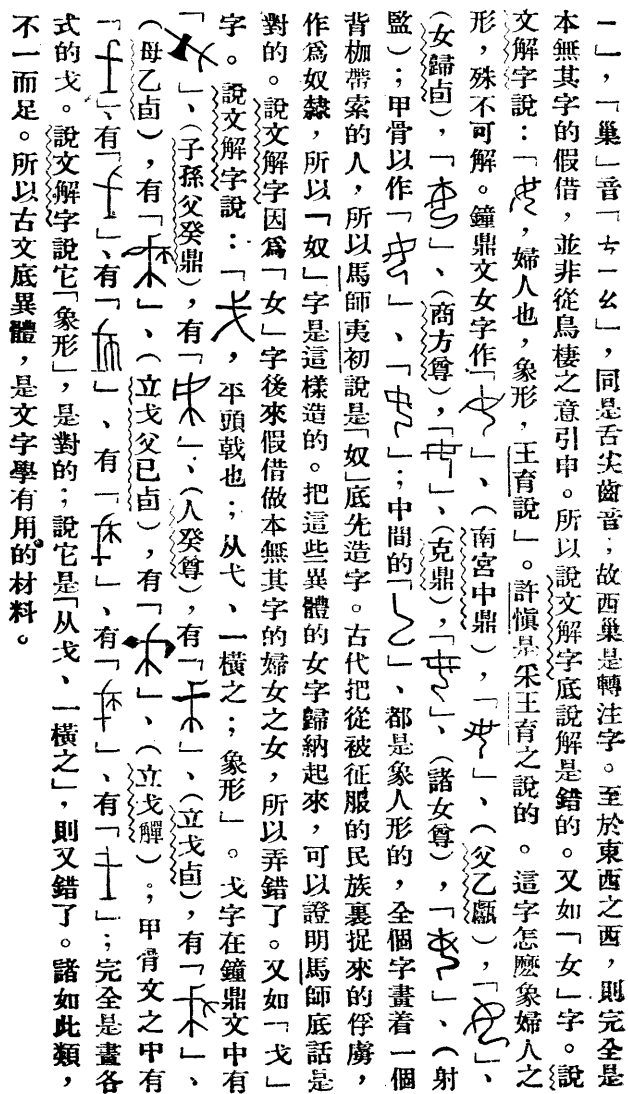 ㄧ」，「巢」音「ㄘㄧㄠ」，同是舌尖齒音；故西巢是轉注字。至於東西之西，則完全是
本無其字的假借，並非從鳥棲之意引申。所以說文解字底說解是錯的。又如「女」字。說
文解字說：「，婦人也，象形，王育說」。許愼是采王育之說的。這字怎麽象婦人之
形，殊不可解。鐘鼎文女字作「」、（南宮中鼎），「」、（父乙甗），「」、
（女歸卣），「」、（商方尊），「」、（克鼎），「」、（諸女尊），「」、（射
監）；甲骨以作「」、「」；中間的「」、都是象人形的，全個字畫着一個
背枷帶索的人，所以馬師夷初說是「奴」底先造字。古代把從被征服的民族裏捉來的俘虜，
作爲奴隸，所以「奴」字是這樣造的。把這些異體的女字歸納起來，可以證明馬師底話是
對的。說文解字因爲「女」字後來假借做本無其字的婦女之女，所以弄錯了。又如「戈」
字。說文解字說：「，平頭戟也；从弋、一橫之；象形」。戈字在鐘鼎文中有
「」、（子孫父癸鼎），有「」、（人癸尊），有「」、（立戈卣），有「」、
（母乙卣），有「」、（立戈父已卣），有「」、（立戈觶）；甲骨文之中有
「」、有「」、有「」、有「」、有「」、有「」；完全是畫各
式的戈。說文解字說它「象形」，是對的；說它是「从戈、一橫之」，則又錯了。諸如此類，
不一而足。所以古文底異體，是文字學有用的材料。